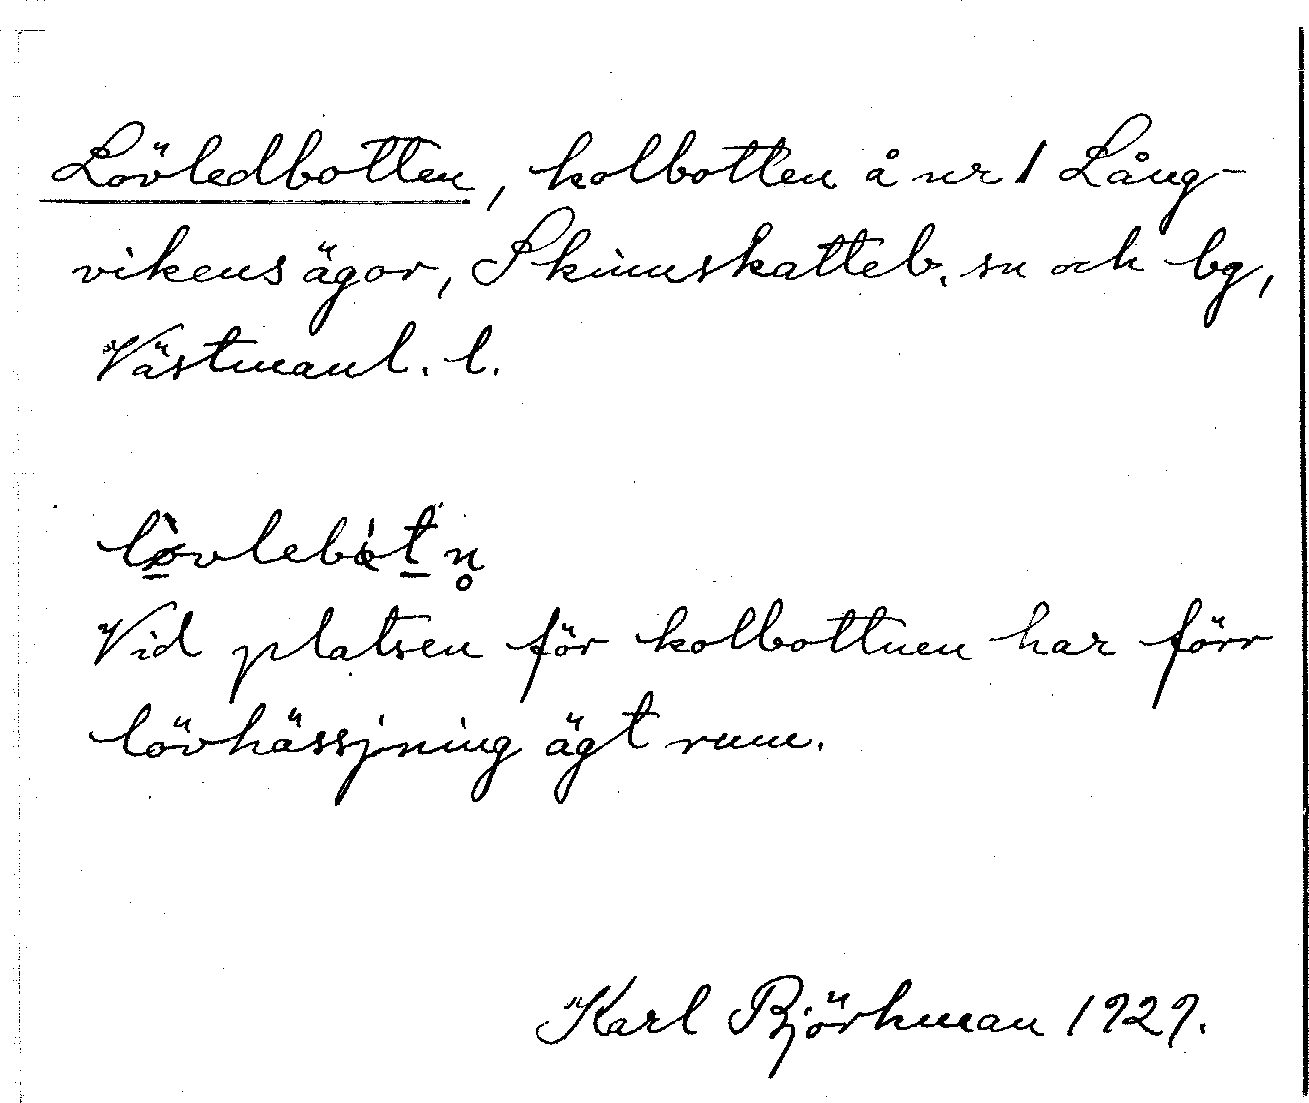 Lövledbotten, kolbotten å nr 1 Lång-
vikens ägor, Skinnskatteb. sn och bg,
Västmanl. l.
lø̀vlebòt n̥
Vid platsen för kolbottnen har förr
lövhässjning ägt rum.
Karl Björkman 1929.